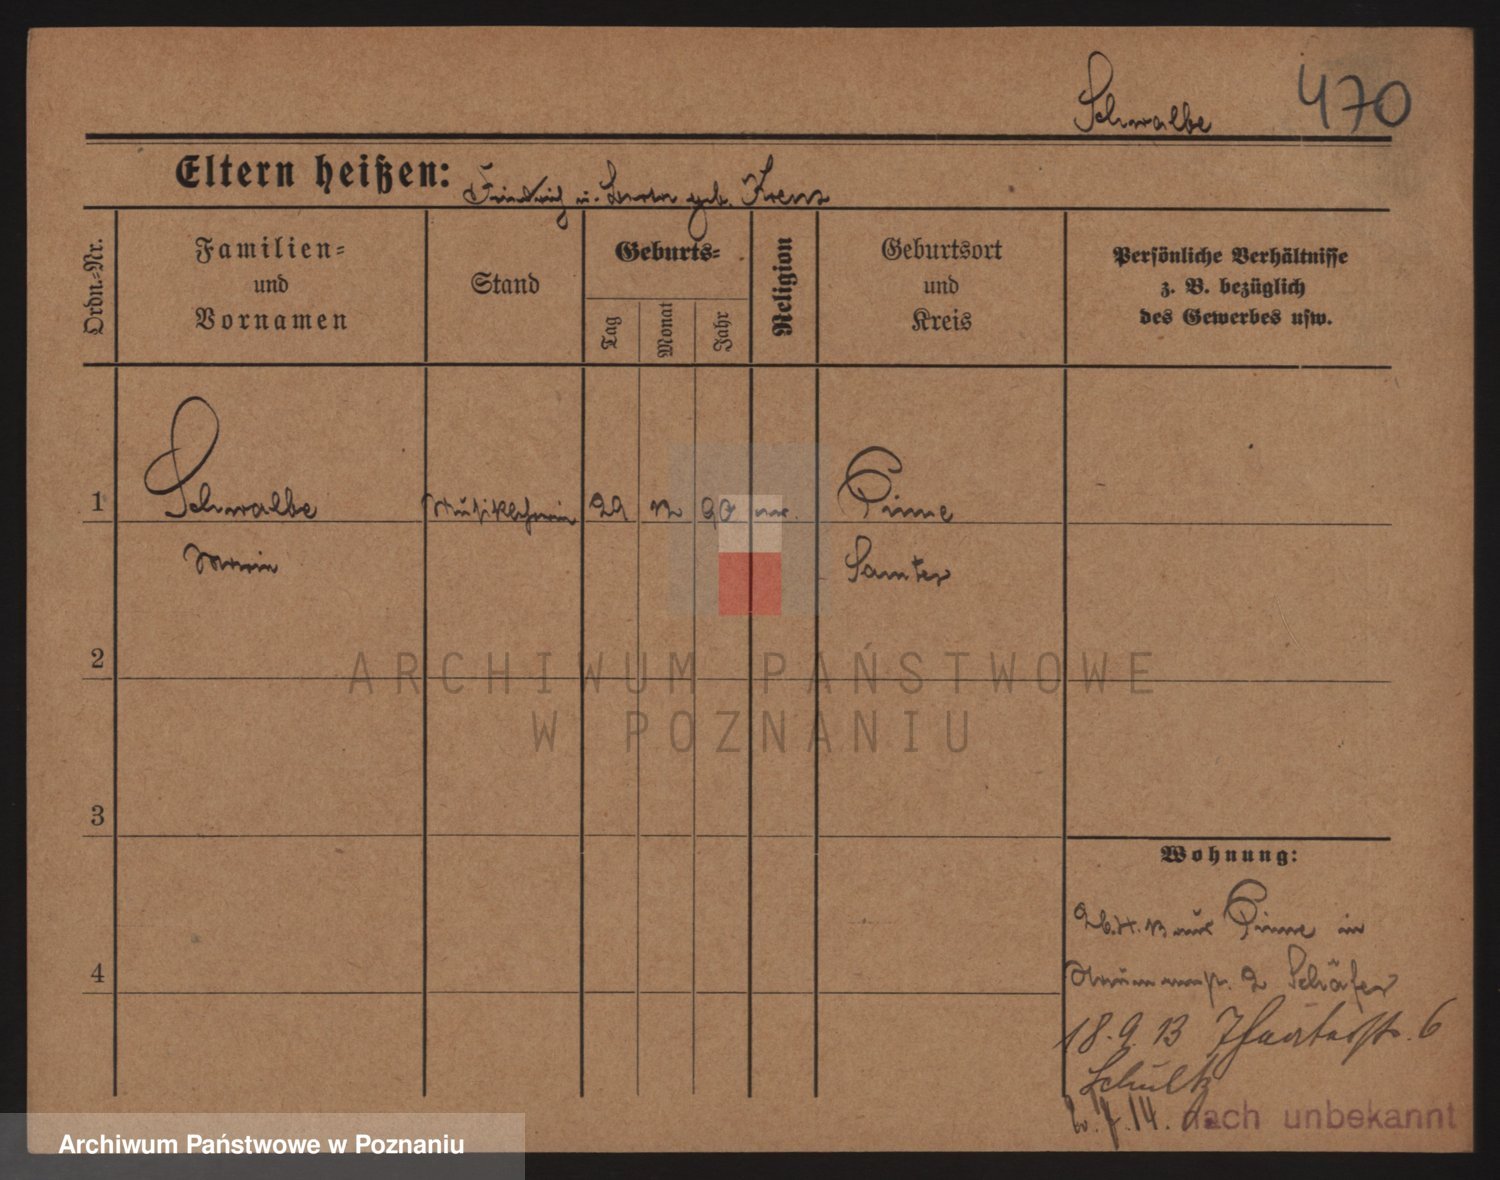 Schwalbe 470
Eltern heißen: Friedrich u. geb. Krenz
Ordn.-Nr.
Familien-
und
Vornamen
Stand
Geburts-
Tag
Monat
Jahr
Religion
Geburtsort
und
Kreis
Persönliche Verhältnisse
z. B. bezüglich
des Gewerbes usw.
1 Schwalbe Musiklehrerin 29 90 Pinne
Samter
2
ARCHIWUM PAŃSTWOWE
W POZNANIU
3
4
Wohnung:
26.4.13 aus Pinne in
2 Schäfer
18.9.13 6
Schultz
14. nach unbekannt
Archiwum Państwowe w Poznaniu